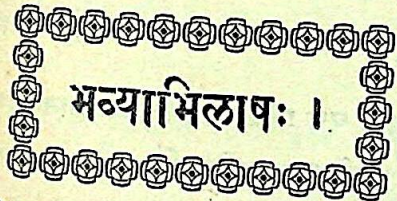 भव्याभिलाषः ।